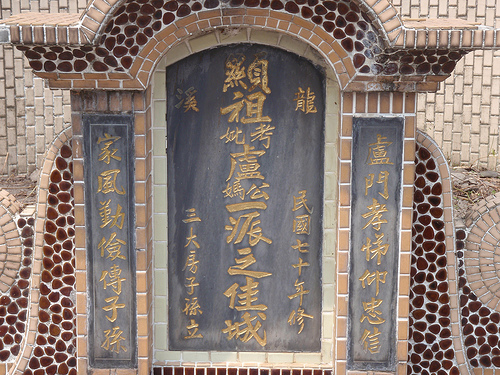 盧門孝悌仰忠信
龍
民國七十年修
顯祖考妣盧公媽一派之佳城
溪
三大房子孫立
家風勤儉傳子孫